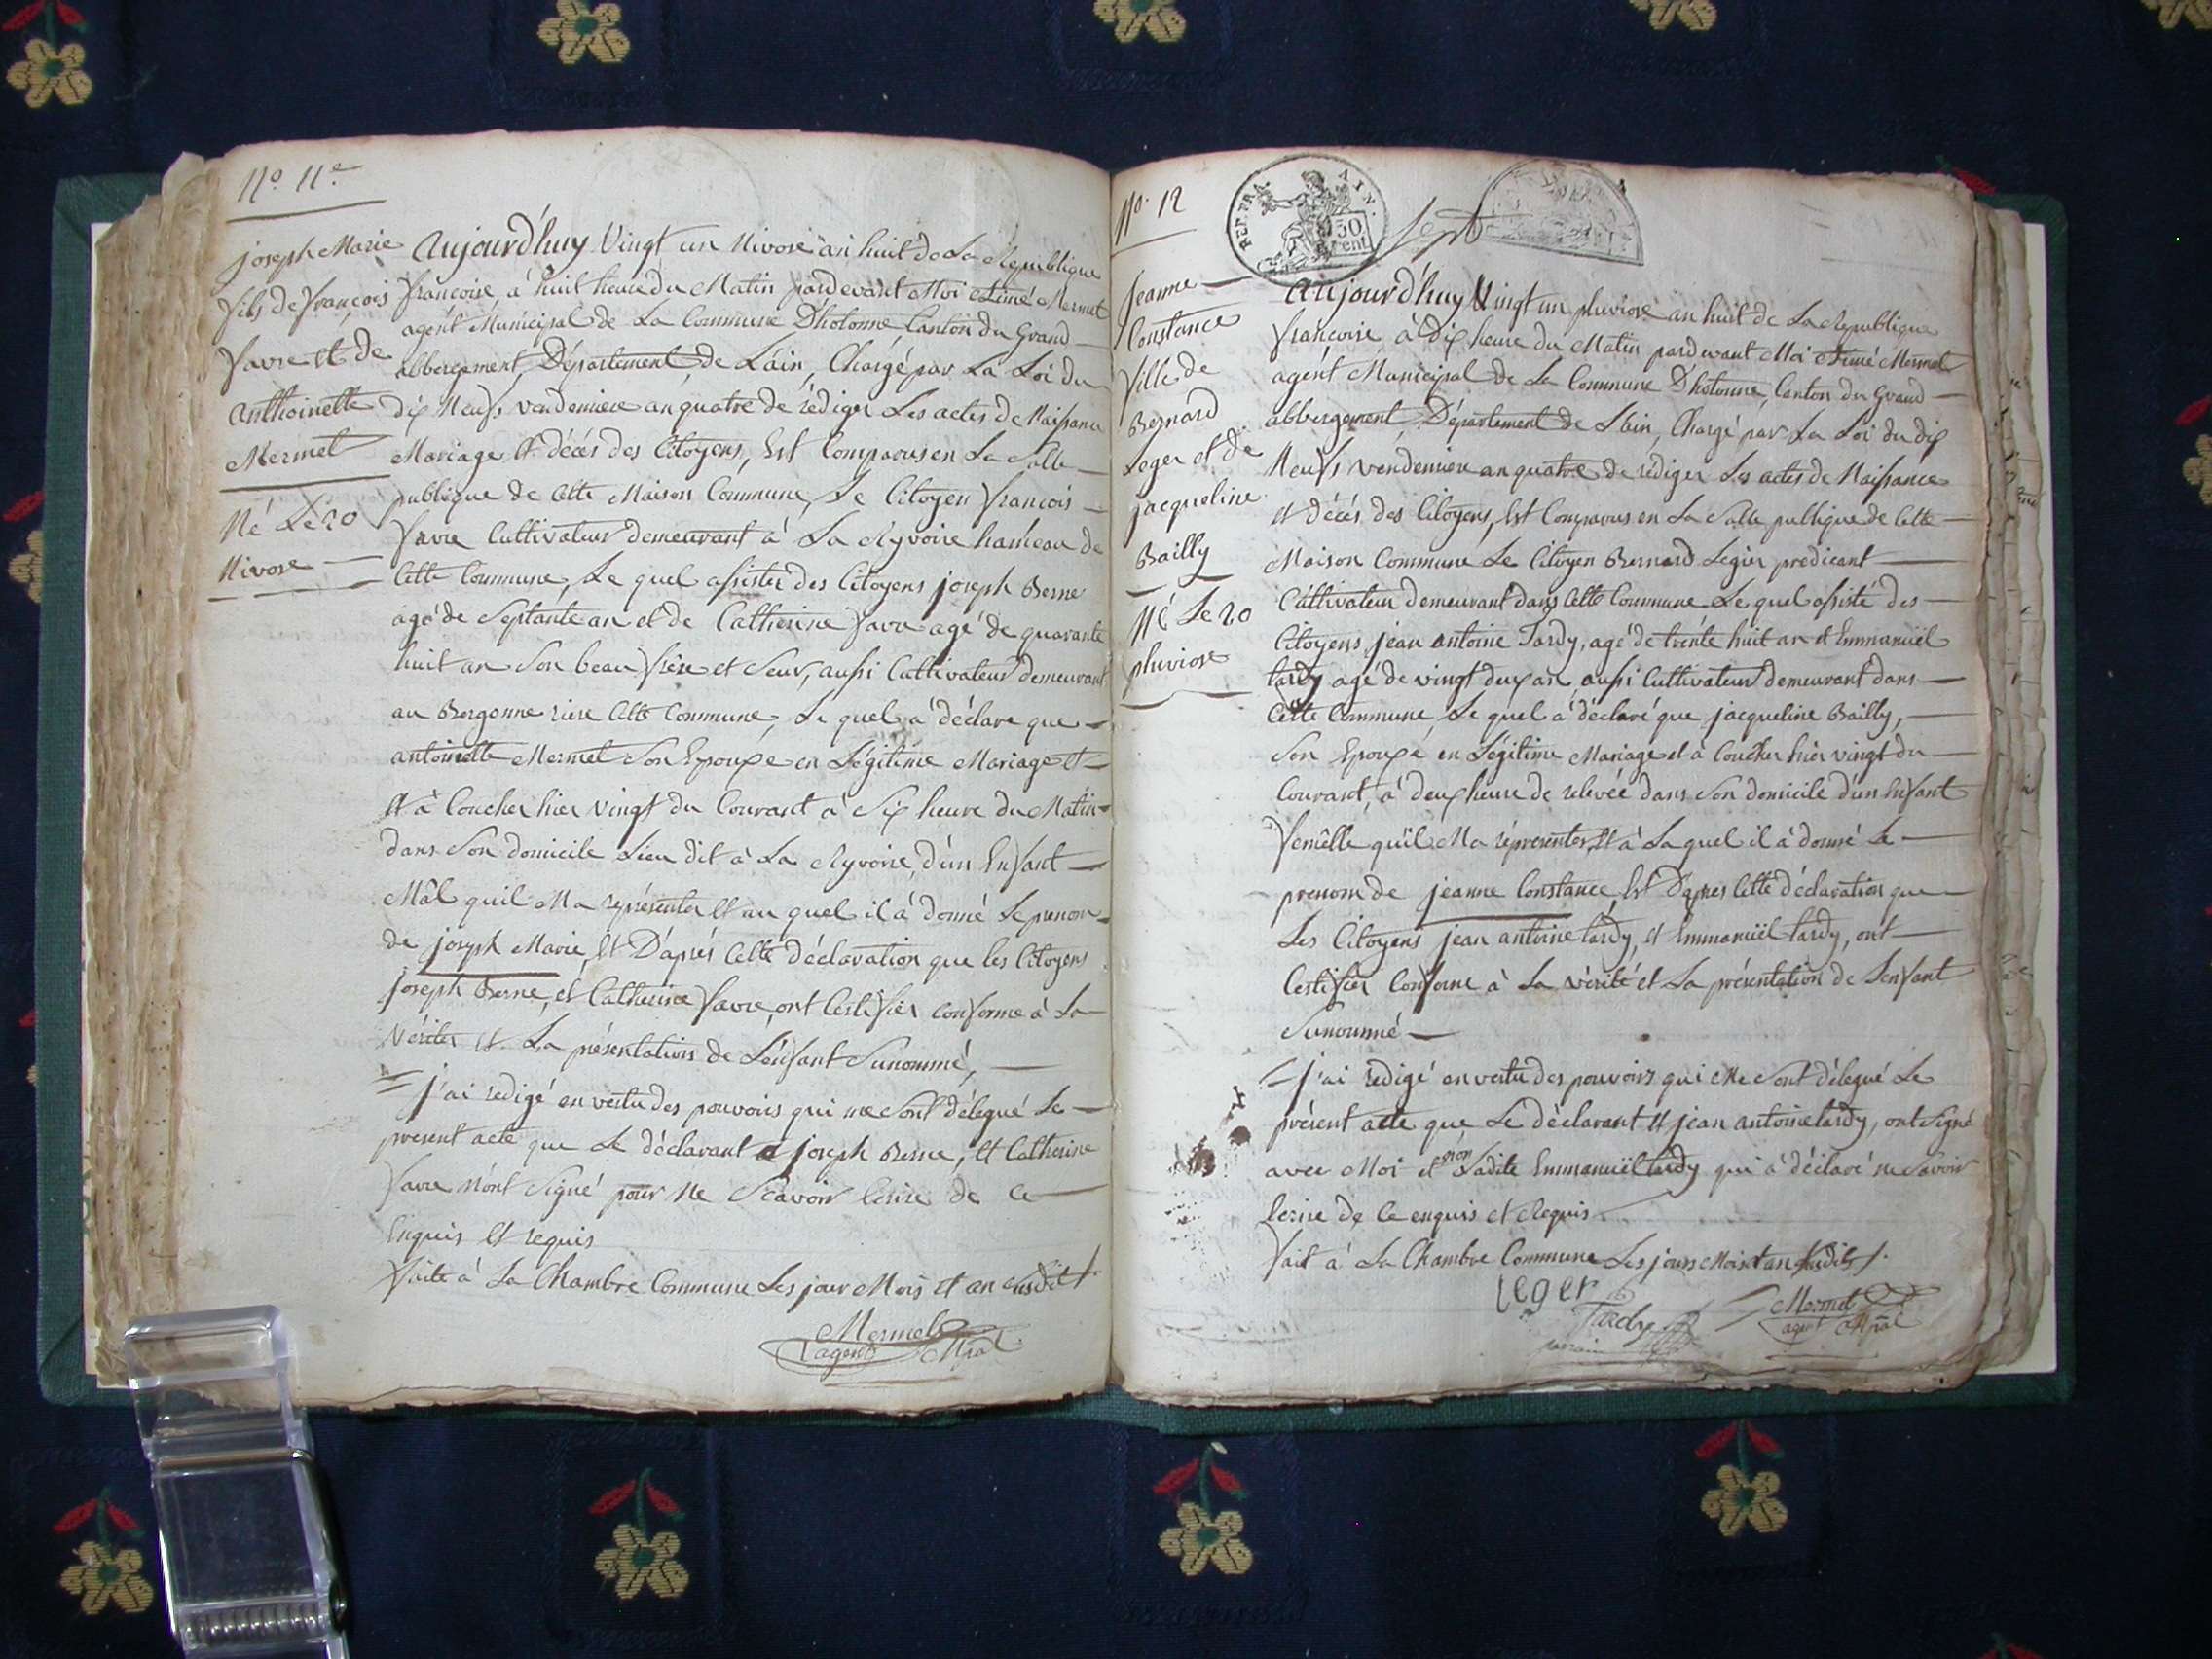 No. 11e
joseph Marie
fils de françois
favre et de
anthoinette
Mermet
Né Le 20
Nivose
aujourd'huy Vingt un Nivose an huit de La Republique
francoise, à huit heure du Matin pardevant Moi Aimé Mermet
agent Municipal de La Commune D'hotonne, Canton du Grand
abbergement, Département de L'ain, Chargé par La Loi du
dix Neufs vendemiere an quatre de rédiger Les actes de Naissance
Mariage et décés des Citoyens, Est Comparus en La Salle
publique de Cette Maison Commune, Le Citoyen francois
favre Cultivateur demeurant à La Ryvoire hameau de
Cette Commune, Le quel assister des Citoyens joseph Berne
agé de Septante an et de Catherine favre agé de quarante
huit an Son beau frére et Seur, aussi Cultivateur demeurant
au Bergonne riere Cette Commune, Le quel à déclare que
antoinette Mermet Son Epouse en Légitime Mariage et
Et à Coucher hier vingt du Courant à Six heure du Matin
dans Son domicile Lieu dit à La Ryvoire, d'un Enfant
Mâl quil Ma représenter et au quel il à donné Le prenom
de joseph Marie, Et D'aprés Cette déclaration que les Citoyens
joseph Berne, et Catherine favre, ont Certifier conforme à La
Vériter et La présentation de L'enfant Sunommé,
= j'ai redigé en vertu des pouvoirs qui me Sont délegué Le
present acte que Le déclarant et joseph Berne, et Catherine
favre n'ont Signé pour Ne Scavoir Ecrire de Ce
Enquis et requis
faite à La Chambre Commune Les jour Mois et an Susdit
Mermet
agent Mpal
No. 12
REP. FRA. AIN.
50 Cent.
Sept
Jeanne
Constance
fille de
Bernard
Leger et de
jacqueline
Bailly
Né Le 20
pluviose
aujourd'huy Vingt un pluviose an huit de La Republique
francoise à Dix heure du Matin pardevant Moi Aimé Mermet
agent Municipal de La Commune D'hotonne, Canton du Grand
abbergement, Département de L'ain, Chargé par La Loi du dix
Neufs vendemiere an quatre de rédiger Les actes de Naissance
et décés des Citoyens, Est Comparus en La Salle publique de Cette
Maison Commune Le Citoyen Bernard Legier predicant
Cultivateur demeurant dans Cette Commune Le quel assisté des
Citoyens jean antoine Tardy, agé de trente huit an et Emmanuël
tardy agé de vingt deux an aussi Cultivateur demeurant dans
Cette Commune Le quel à déclaré que jacqueline Bailly,
Son Epouse en Légitime Mariage et à Coucher hier vingt du
Courant, à deux heure de relevée dans Son domicile d'un Enfant
femêlle qu'il Ma représenter, Et à La quel il à donné Le
prenom de jeanne Constance, Et D'apres Cette déclaration que
Les Citoyens jean antoine tardy, et Emmanuël tardy, ont
Certifier Conforme à La vérité et La présentation de Lenfant
Sunommé
= j'ai redigé en vertu des pouvoirs qui Me Sont délegué Le
présent acte que Le déclarant et jean antoine tardy, ont Signé
avec Moi et non Ladite Emmanuël tardy qui à déclaré ne Savoir
Ecrire de Ce enquis et Requis
fait à La Chambre Commune Les jours Mois et an Susdits
leger
Tardy
parrain
Mermet
agent Mpal